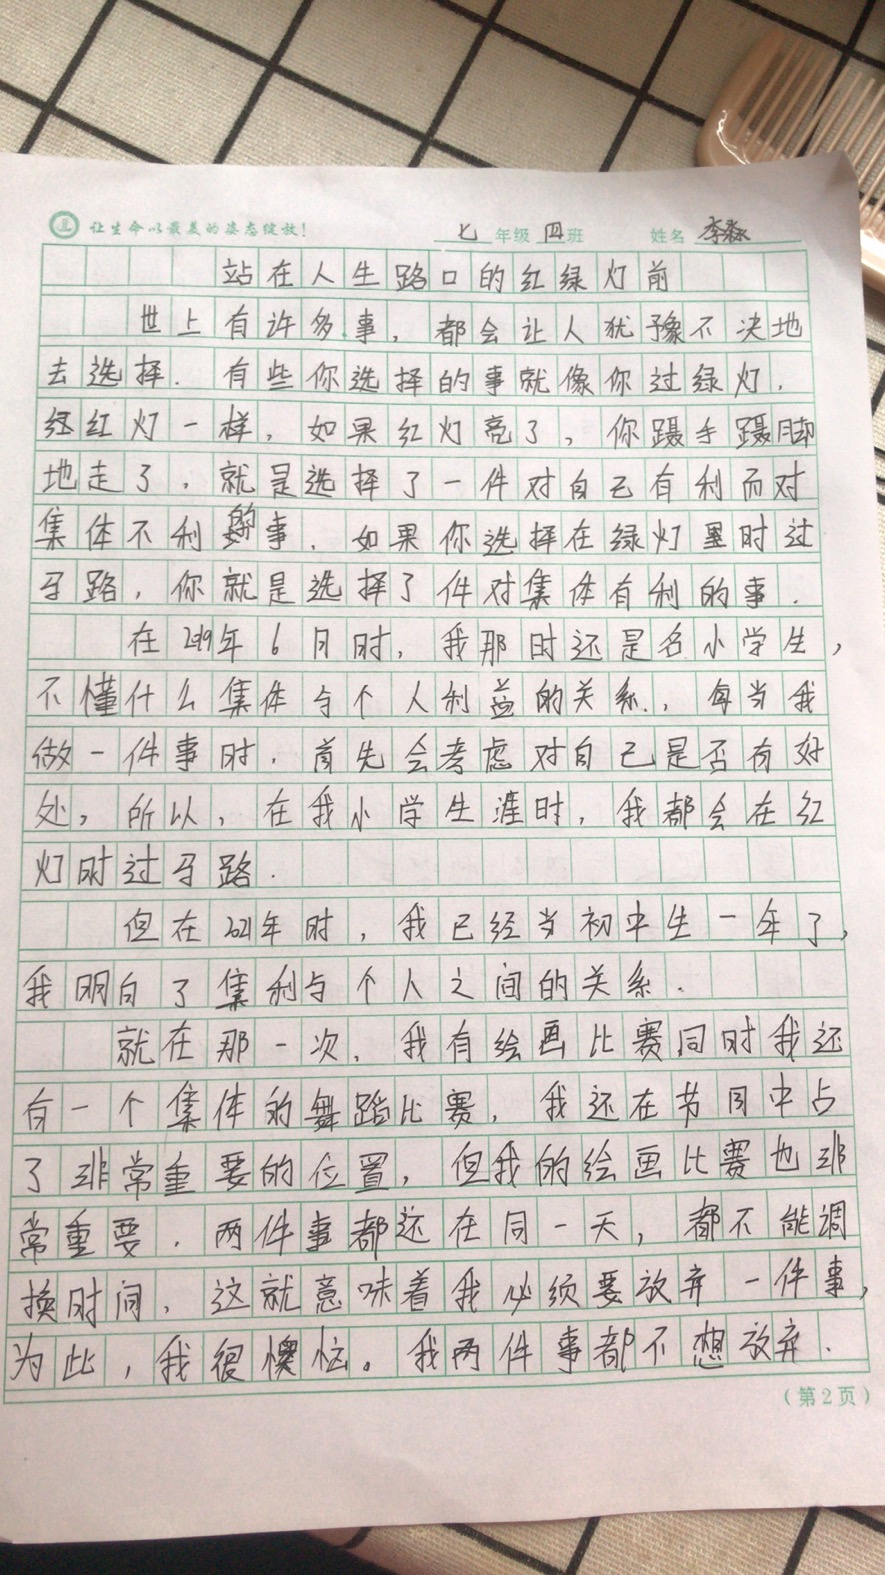 让生命以最美的姿态绽放！ 七年级 四班 姓名 李淼
站在人生路口的红绿灯前
世上有许多事，都会让人犹豫不决地
去选择．有些你选择的事就像你过绿灯．
红灯一样，如果红灯亮了，你蹑手蹑脚
地走了，就是选择了一件对自己有利而对
集体不利的事．如果你选择在绿灯时过
马路，你就是选择了件对集体有利的事．
在2019年6月时，我那时还是名小学生，
不懂什么集体与个人利益的关系．，每当我
做一件事时，首先会考虑对自己是否有好
处，所以，在我小学生涯时，我都会在红
灯时过马路．
但在2021年时，我已经当初中生一年了，
我明白了集利与个人之间的关系．
就在那一次，我有绘画比赛同时我还
有一个集体的舞蹈比赛，我还在节目中占
了非常重要的位置，但我的绘画比赛也非
常重要．两件事都还在同一天，都不能调
换时间，这就意味着我必须要放弃一件事，
为此，我很懊恼。我两件事都不想放弃．
（第2页）